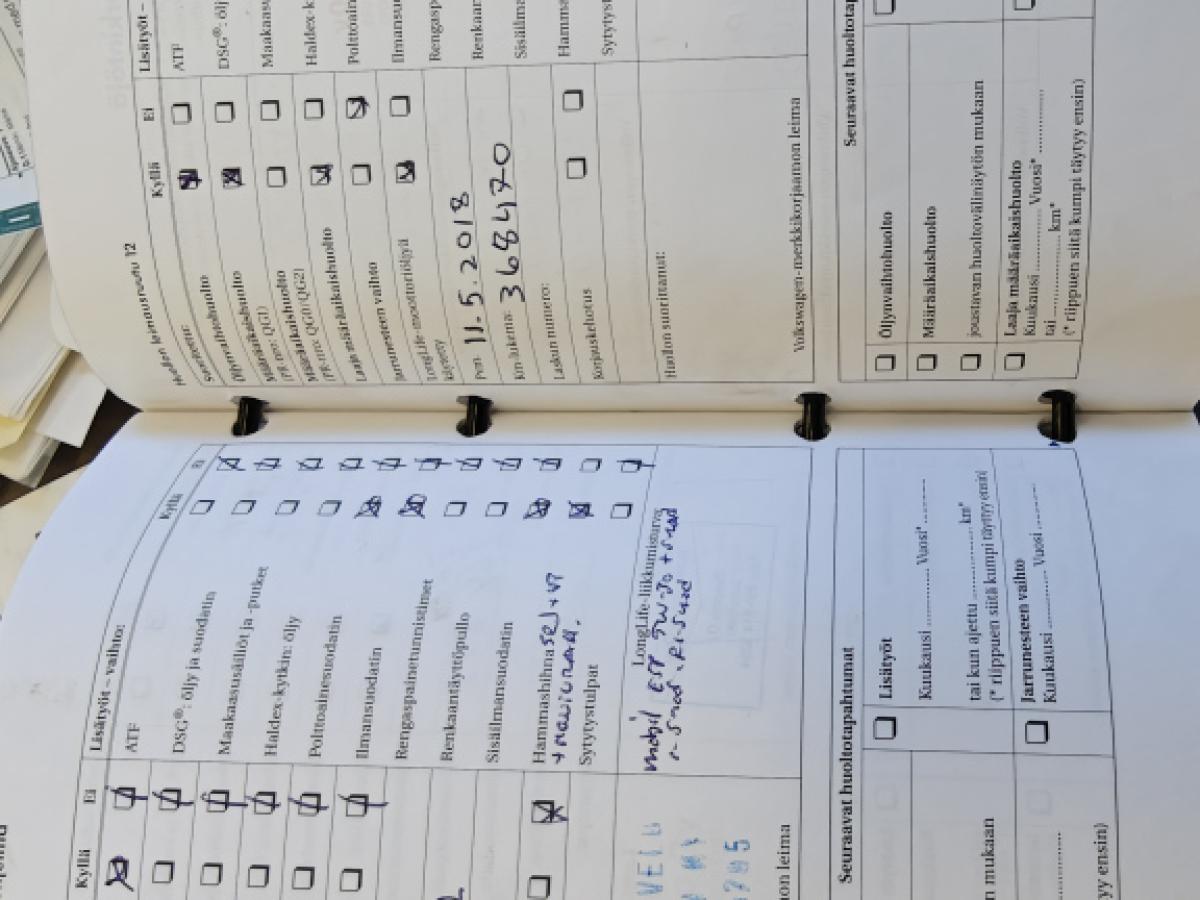 Huollon leimausruutu 12
Suoritettu: Kyllä Ei
Öljynvaihtohuolto
Määräaikaishuolto
(PR-nro: QG1)
Määräaikaishuolto
(PR-nro: QG0/QG2)
Laaja määräaikaishuolto
Jarrunesteen vaihto
LongLife-moottoriöljyä
käytetty
Pvm 11.5.2018
Km-lukema: 368470
Laskun numero:
Korjauskehotus
Huollon suorittanut:
Volkswagen-merkkikorjaamon leima
Lisätyöt –
ATF
DSG®: ölj
Maakaasu
Haldex-k
Polttoain
Ilmansu
Rengasp
Renkaan
Sisäilma
Hamma
Sytytyst
Seuraavat huoltotap
Öljynvaihtohuolto
Määräaikaishuolto
joustavan huoltovälinäytön mukaan
Laaja määräaikaishuolto
Kuukausi Vuosi*
tai km*
(* riippuen siitä kumpi täytyy ensin)
Kyllä Ei
Lisätyöt – vaihto: Kyllä Ei
ATF
DSG®: öljy ja suodatin
Maakaasusäiliöt ja -putket
Haldex-kytkin: öljy
Polttoainesuodatin
Ilmansuodatin
Rengaspainetunnistimet
Renkaantäyttöpullo
Sisäilmansuodatin
Hammashihna
Sytytystulpat
LongLife-liikkumisturva
mobil ESP 5W-30 + s-uod
on leima
Seuraavat huoltotapahtumat
n mukaan
yy ensin)
Lisätyöt
Kuukausi Vuosi*
tai kun ajettu km*
(* riippuen siitä kumpi täyttyy ensin)
Jarrunesteen vaihto
Kuukausi Vuosi